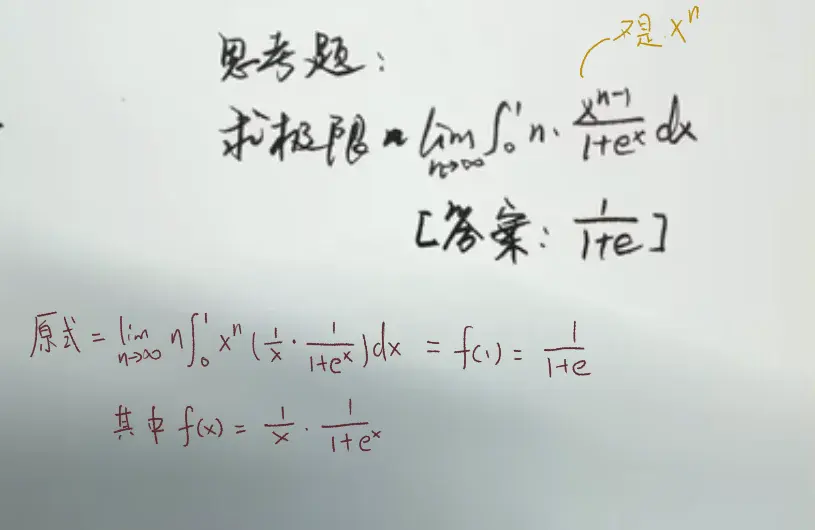 又是 xⁿ
思考题:
求极限 lim_{n→∞} ∫₀¹ n· \frac{x^{n-1}}{1+e^x} dx
[答案: \frac{1}{1+e}]
原式 = lim_{n→∞} n∫₀¹ xⁿ (\frac{1}{x} · \frac{1}{1+e^x}) dx = f(1) = \frac{1}{1+e}
其中 f(x) = \frac{1}{x} · \frac{1}{1+e^x}